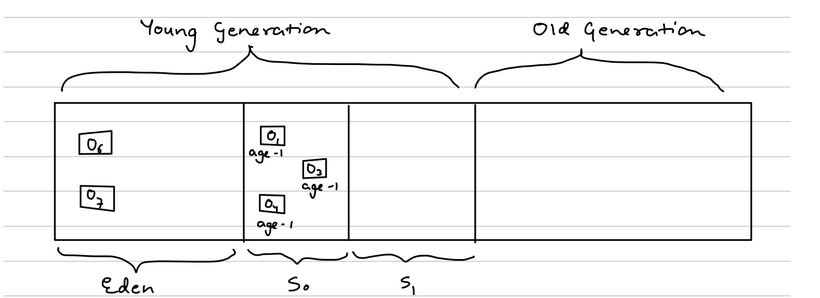 Young Generation
Old Generation
O6
O7
O1
age-1
O3
age-1
O4
age-1
Eden
S0
S1